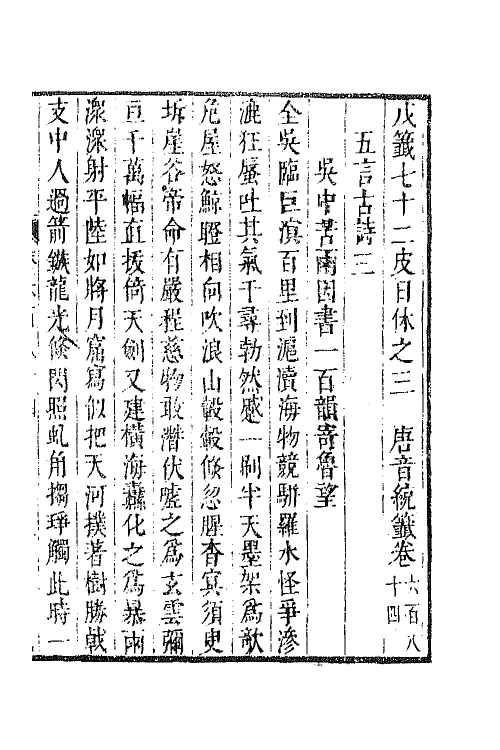 戊籤七十二皮日休之三　唐音統籤卷六百八十四
五言古詩三
吳中苦雨因書一百韻寄魯望
全吳臨巨溟百里到滬瀆海物競駢羅水怪爭滲
漉狂蜃吐其氣千尋勃然蹙一刷半天墨架爲欹
危屋怒鯨瞪相向吹浪山轂轂倏忽腥杳冥須臾
坼崖谷帝命有嚴程慈物敢潛伏噓之爲玄雲彌
亘千萬幅直拔倚天劍又建橫海纛化之爲暴雨
潀潀射平陸如將月窟寫似把天河撲著樹勝戟
支中人過箭鏃龍光倏閃照虬角搊琤觸此時一